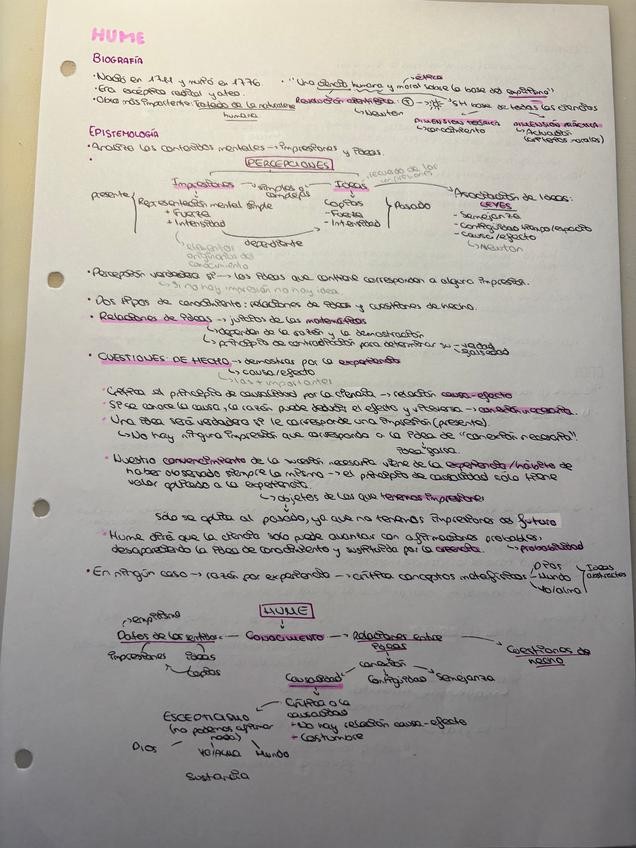 HUME
BIOGRAFÍA
· Nació en 1711 y murió en 1776.
· Era escéptico radical y ateo.
· Obra más importante: Tratado de la naturaleza humana
· "Una ciencia humana y moral sobre la base del empirismo"
→ ética
Revolución científica
↳ Newton
SH base de todas las ciencias
DIMENSIÓN TEÓRICA
↳ conocimiento
DIMENSIÓN PRÁCTICA
↳ Actuación
(criterios morales)
EPISTEMOLOGÍA
· Analiza los contenidos mentales → impresiones y ideas.
PERCEPCIONES
recuerdo de las impresiones
Impresiones → simples o complejas ← Ideas
presente
Representación mental simple
+ Fuerza
+ Intensidad
Copias
- Fuerza
- Intensidad
Pasado
dependiente
elementos originarios del conocimiento
Asociación de Ideas:
LEYES
- Semejanza
- Contigüidad tiempo/espacio
- causa/efecto
↳ Newton
· Percepción verdadera si → las ideas que contiene corresponden a alguna impresión.
↳ Si no hay impresión no hay idea
· Dos tipos de conocimiento: relaciones de ideas y cuestiones de hecho.
· Relaciones de ideas → juicios de las matemáticas
↳ dependen de la razón y la demostración
↳ principio de contradicción para determinar su - verdad
- falsedad
· CUESTIONES DE HECHO → demostras por la experiencia
↳ causa/efecto
↳ las + importantes
· Crítica al principio de causalidad por la ciencia → relación causa-efecto
· Si se conoce la causa, la razón puede deducir el efecto y viceversa → conexión necesaria.
· Una idea será verdadera si le corresponde una impresión (presente).
↳ No hay ninguna impresión que corresponda a la idea de "conexión necesaria".
idea falsa.
· Nuestro convencimiento de la sucesión necesaria viene de la experiencia/hábito de
haber observado siempre lo mismo → el principio de causalidad solo tiene
valor aplicado a la experiencia.
↳ objetos de los que tenemos impresiones
Sólo se aplica al pasado, ya que no tenemos impresiones del futuro
· Hume dirá que la ciencia solo puede avanzar con afirmaciones probables,
desapareciendo la idea de conocimiento y sustituida por la creencia. ↳ probabilidad
· En ningún caso → razón por experiencia → crítica conceptos metafísicos
- Dios
- Mundo
- Yo/alma
Ideas abstractas
HUME
→ empirismo
Datos de los sentidos — CONOCIMIENTO → Relaciones entre ideas → Cuestiones de hecho
Impresiones
ideas
Copias
conexión
Causalidad
Contigüidad
Semejanza
Crítica a la causalidad
- No hay relación causa-efecto
+ Costumbre
ESCEPTICISMO
(no podemos afirmar nada)
Dios
Yo/Alma
Mundo
Sustancia